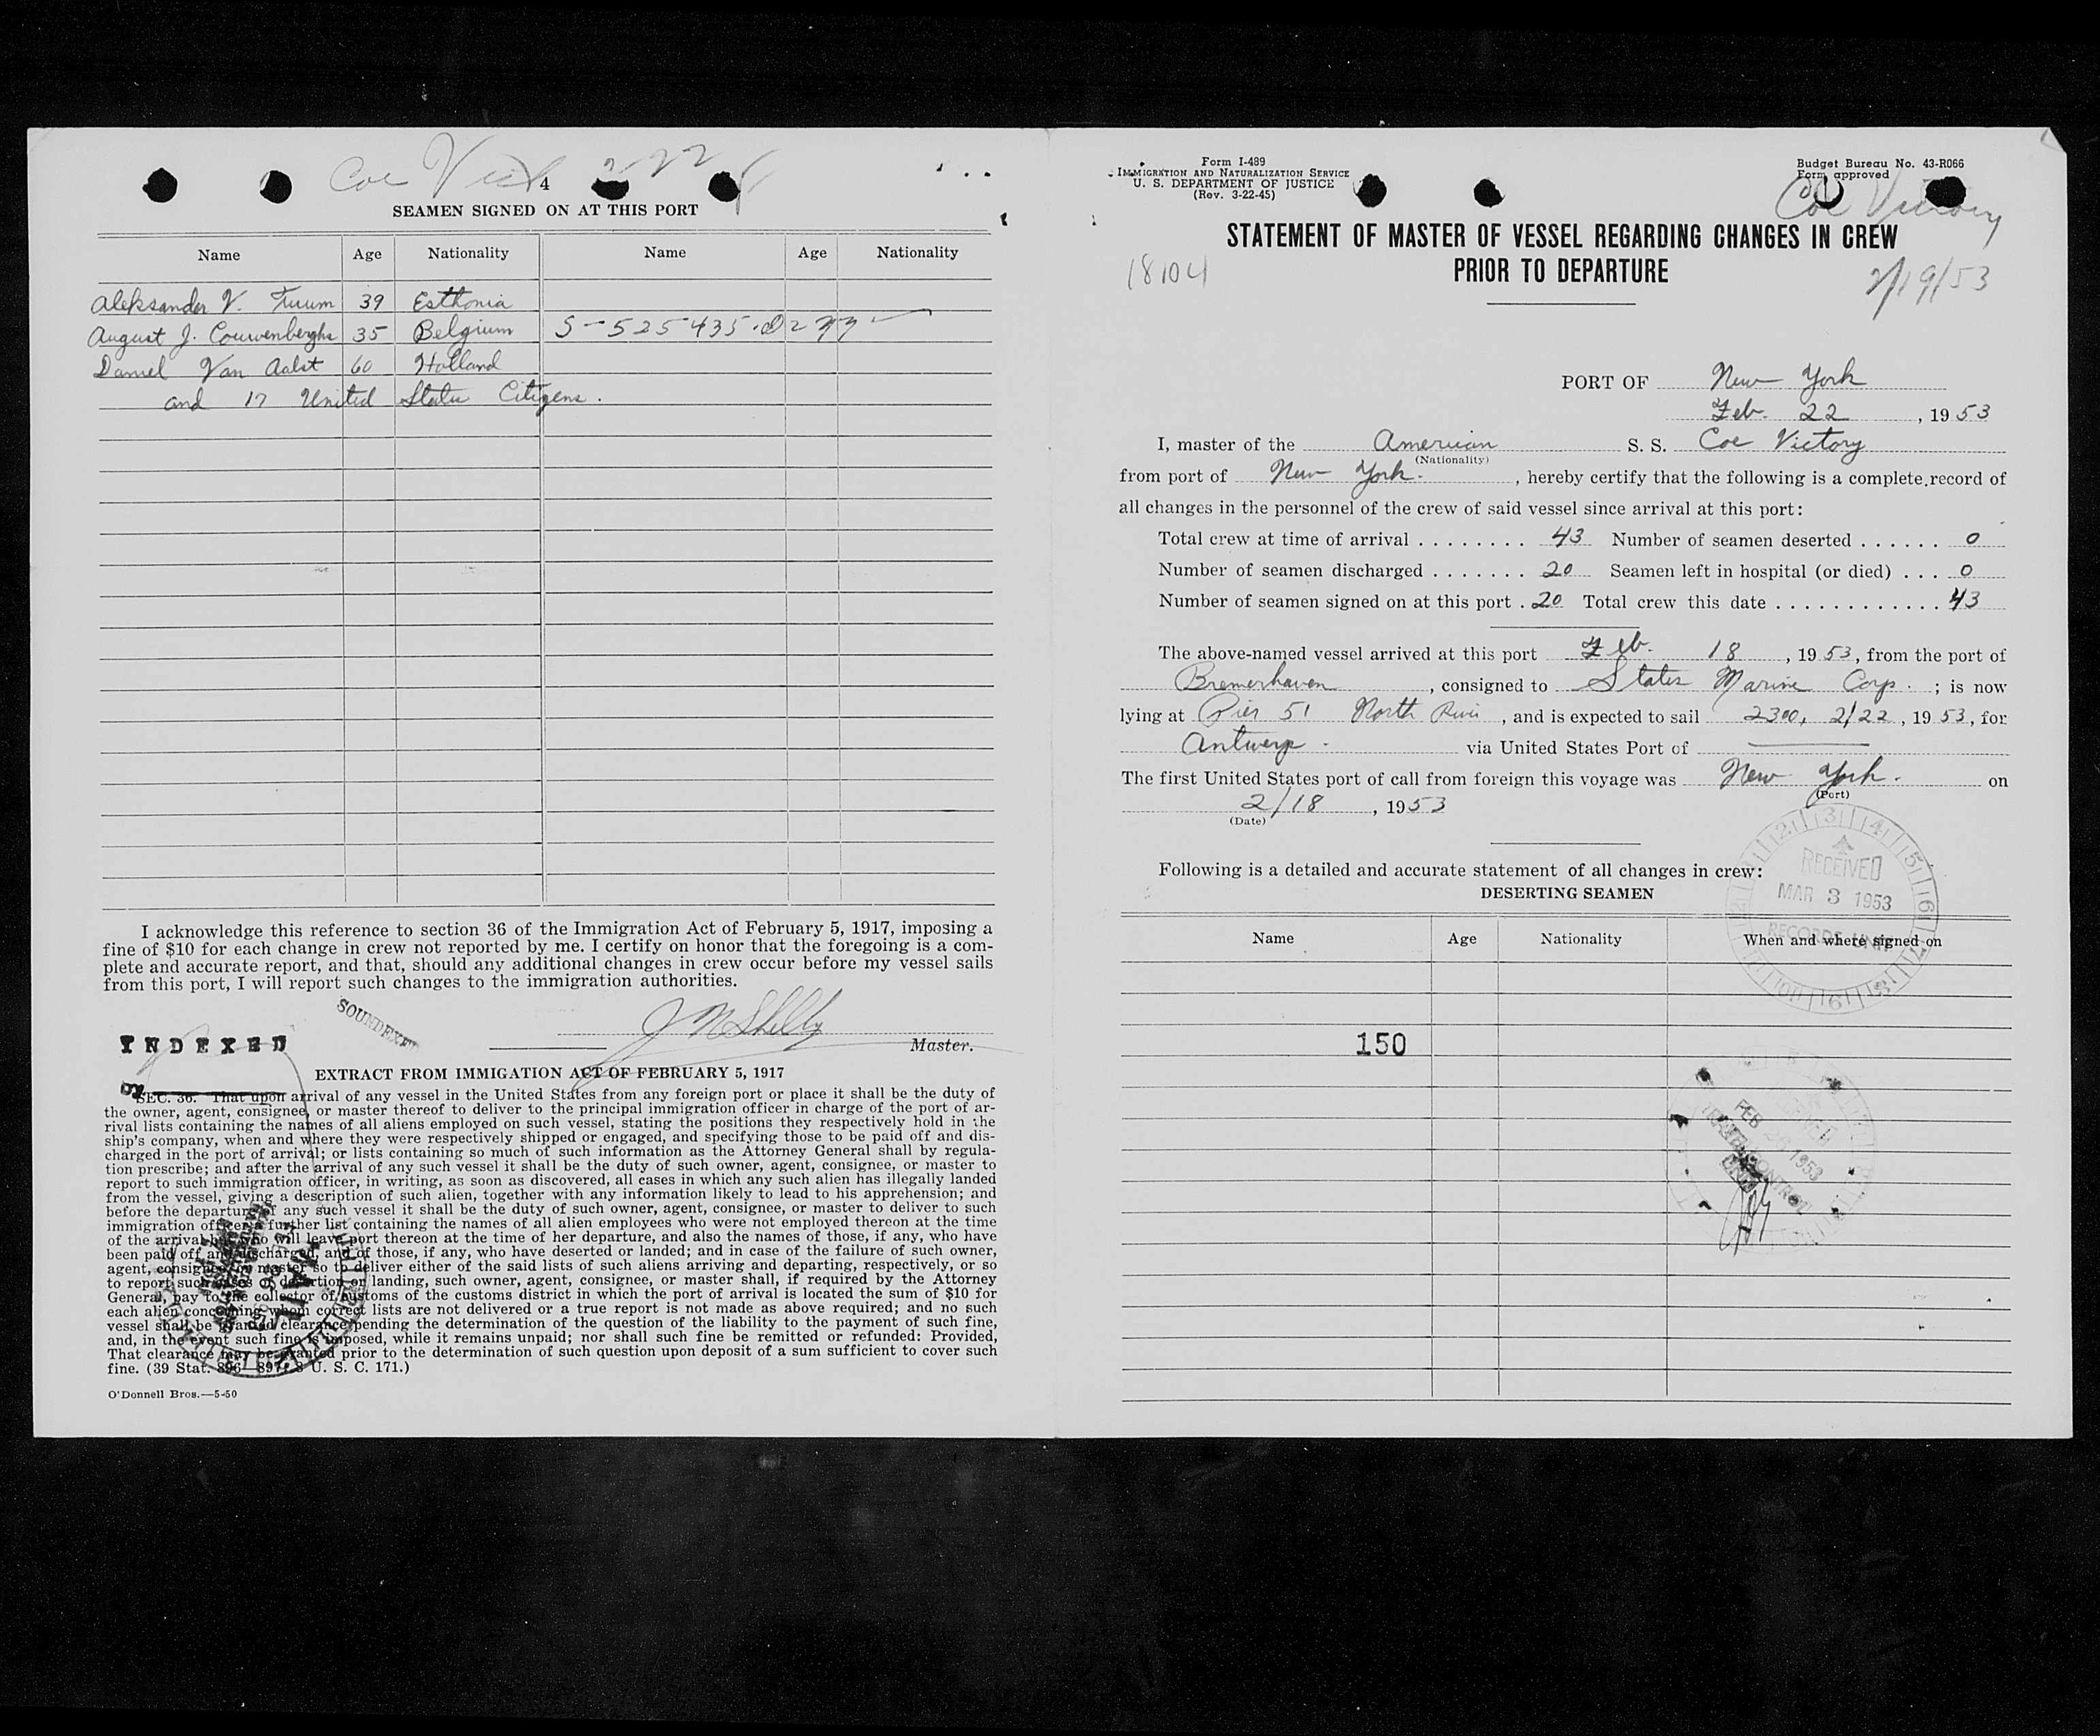 Coe Vict 2-22
4
SEAMEN SIGNED ON AT THIS PORT
Name Age Nationality Name Age Nationality
Aleksander V. 39 Esthonia
August J. Couwenberghs 35 Belgium S-525435
Daniel Van Aalst 60 Holland
and 17 United States Citizens.
I acknowledge this reference to section 36 of the Immigration Act of February 5, 1917, imposing a
fine of $10 for each change in crew not reported by me. I certify on honor that the foregoing is a com-
plete and accurate report, and that, should any additional changes in crew occur before my vessel sails
from this port, I will report such changes to the immigration authorities.
SOUNDEXED
INDEXED
J M Shelly
Master.
EXTRACT FROM IMMIGATION ACT OF FEBRUARY 5, 1917
SEC. 36. That upon arrival of any vessel in the United States from any foreign port or place it shall be the duty of
the owner, agent, consignee, or master thereof to deliver to the principal immigration officer in charge of the port of ar-
rival lists containing the names of all aliens employed on such vessel, stating the positions they respectively hold in the
ship's company, when and where they were respectively shipped or engaged, and specifying those to be paid off and dis-
charged in the port of arrival; or lists containing so much of such information as the Attorney General shall by regula-
tion prescribe; and after the arrival of any such vessel it shall be the duty of such owner, agent, consignee, or master to
report to such immigration officer, in writing, as soon as discovered, all cases in which any such alien has illegally landed
from the vessel, giving a description of such alien, together with any information likely to lead to his apprehension; and
before the departure of any such vessel it shall be the duty of such owner, agent, consignee, or master to deliver to such
immigration officer a further list containing the names of all alien employees who were not employed thereon at the time
of the arrival but who will leave port thereon at the time of her departure, and also the names of those, if any, who have
been paid off and discharged, and of those, if any, who have deserted or landed; and in case of the failure of such owner,
agent, consignee, or master so to deliver either of the said lists of such aliens arriving and departing, respectively, or so
to report such cases of desertion or landing, such owner, agent, consignee, or master shall, if required by the Attorney
General, pay to the collector of customs of the customs district in which the port of arrival is located the sum of $10 for
each alien concerning whom correct lists are not delivered or a true report is not made as above required; and no such
vessel shall be granted clearance pending the determination of the question of the liability to the payment of such fine,
and, in the event such fine is imposed, while it remains unpaid; nor shall such fine be remitted or refunded: Provided,
That clearance may be granted prior to the determination of such question upon deposit of a sum sufficient to cover such
fine. (39 Stat. 896-897; 8 U. S. C. 171.)
O'Donnell Bros.—5-50
Form I-489
IMMIGRATION AND NATURALIZATION SERVICE
U. S. DEPARTMENT OF JUSTICE
(Rev. 3-22-45)
Budget Bureau No. 43-R066
Form approved
Coe Victory
STATEMENT OF MASTER OF VESSEL REGARDING CHANGES IN CREW
PRIOR TO DEPARTURE
18104
2/19/53
PORT OF New York
Feb. 22, 1953
I, master of the American S. S. Coe Victory
(Nationality)
from port of New York., hereby certify that the following is a complete record of
all changes in the personnel of the crew of said vessel since arrival at this port:
Total crew at time of arrival ........ 43 Number of seamen deserted ...... 0
Number of seamen discharged ....... 20 Seamen left in hospital (or died) ... 0
Number of seamen signed on at this port . 20 Total crew this date ............. 43
The above-named vessel arrived at this port Feb. 18, 1953, from the port of
Bremerhaven, consigned to States Marine Corp. ; is now
lying at Pier 51 North River, and is expected to sail 2300, 2/22, 1953, for
Antwerp. via United States Port of
The first United States port of call from foreign this voyage was New York. on
(Port)
2/18, 1953
(Date)
Following is a detailed and accurate statement of all changes in crew:
RECEIVED
MAR 3 1953
RECORDS UNIT
DESERTING SEAMEN
Name Age Nationality When and where signed on
150
FEB 1953